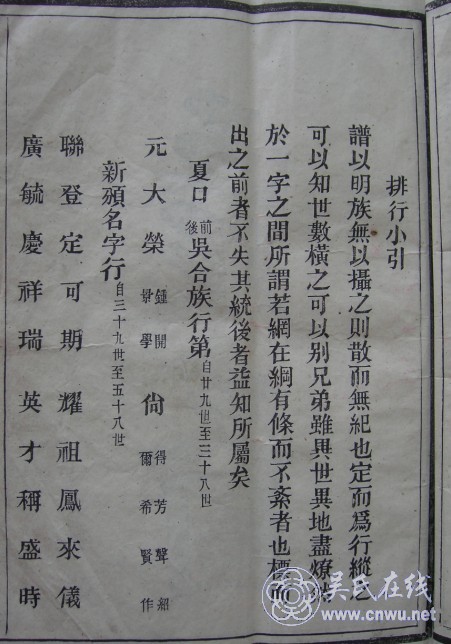 排行小引
譜以明族無以攝之則散而無紀也定而爲行縱之
可以知世數橫之可以別兄弟雖異世異地盡燎然
於一字之間所謂若網在綱有條而不紊者也標而
出之前者不失其統後者益知所屬矣
夏口前後吳合族行第自廿九世至三十八世
元大榮鍾開景學尙得芳聲紹爾希賢作
新頒名字行自三十九世至五十八世
聯登定可期 耀祖鳳來儀
廣毓慶祥瑞 英才稱盛時
吴氏在线
www.cnwu.net